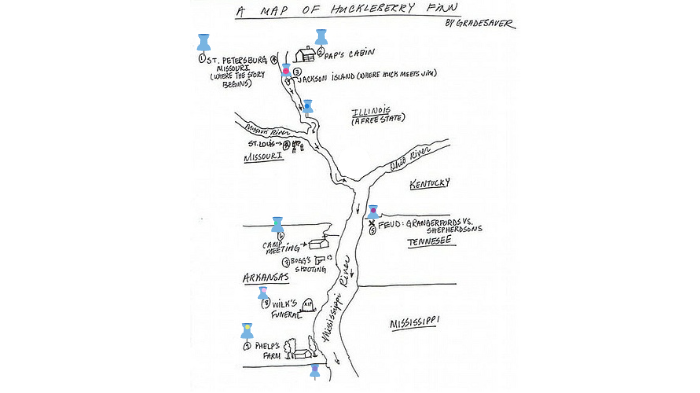 A MAP OF HUCKLEBERRY FINN
BY GRADESAVER
① ST. PETERSBURG
MISSOURI
(WHERE THE STORY
BEGINS)
② PAP'S CABIN
③
JACKSON ISLAND (WHERE HUCK MEETS JIM)
ILLINOIS
(A FREE STATE)
Missouri River
ST. LOUIS →
MISSOURI
Ohio River
KENTUCKY
X FEUD: GRANGERFORDS VS.
⑤ SHEPHERDSONS
TENNESEE
⑥
CAMP
MEETING →
⑦ BOGGS'S
SHOOTING
ARKANSAS
⑧ WILK'S
FUNERAL
RIP
Mississippi River
MISSISSIPPI
PHELP'S
FARM